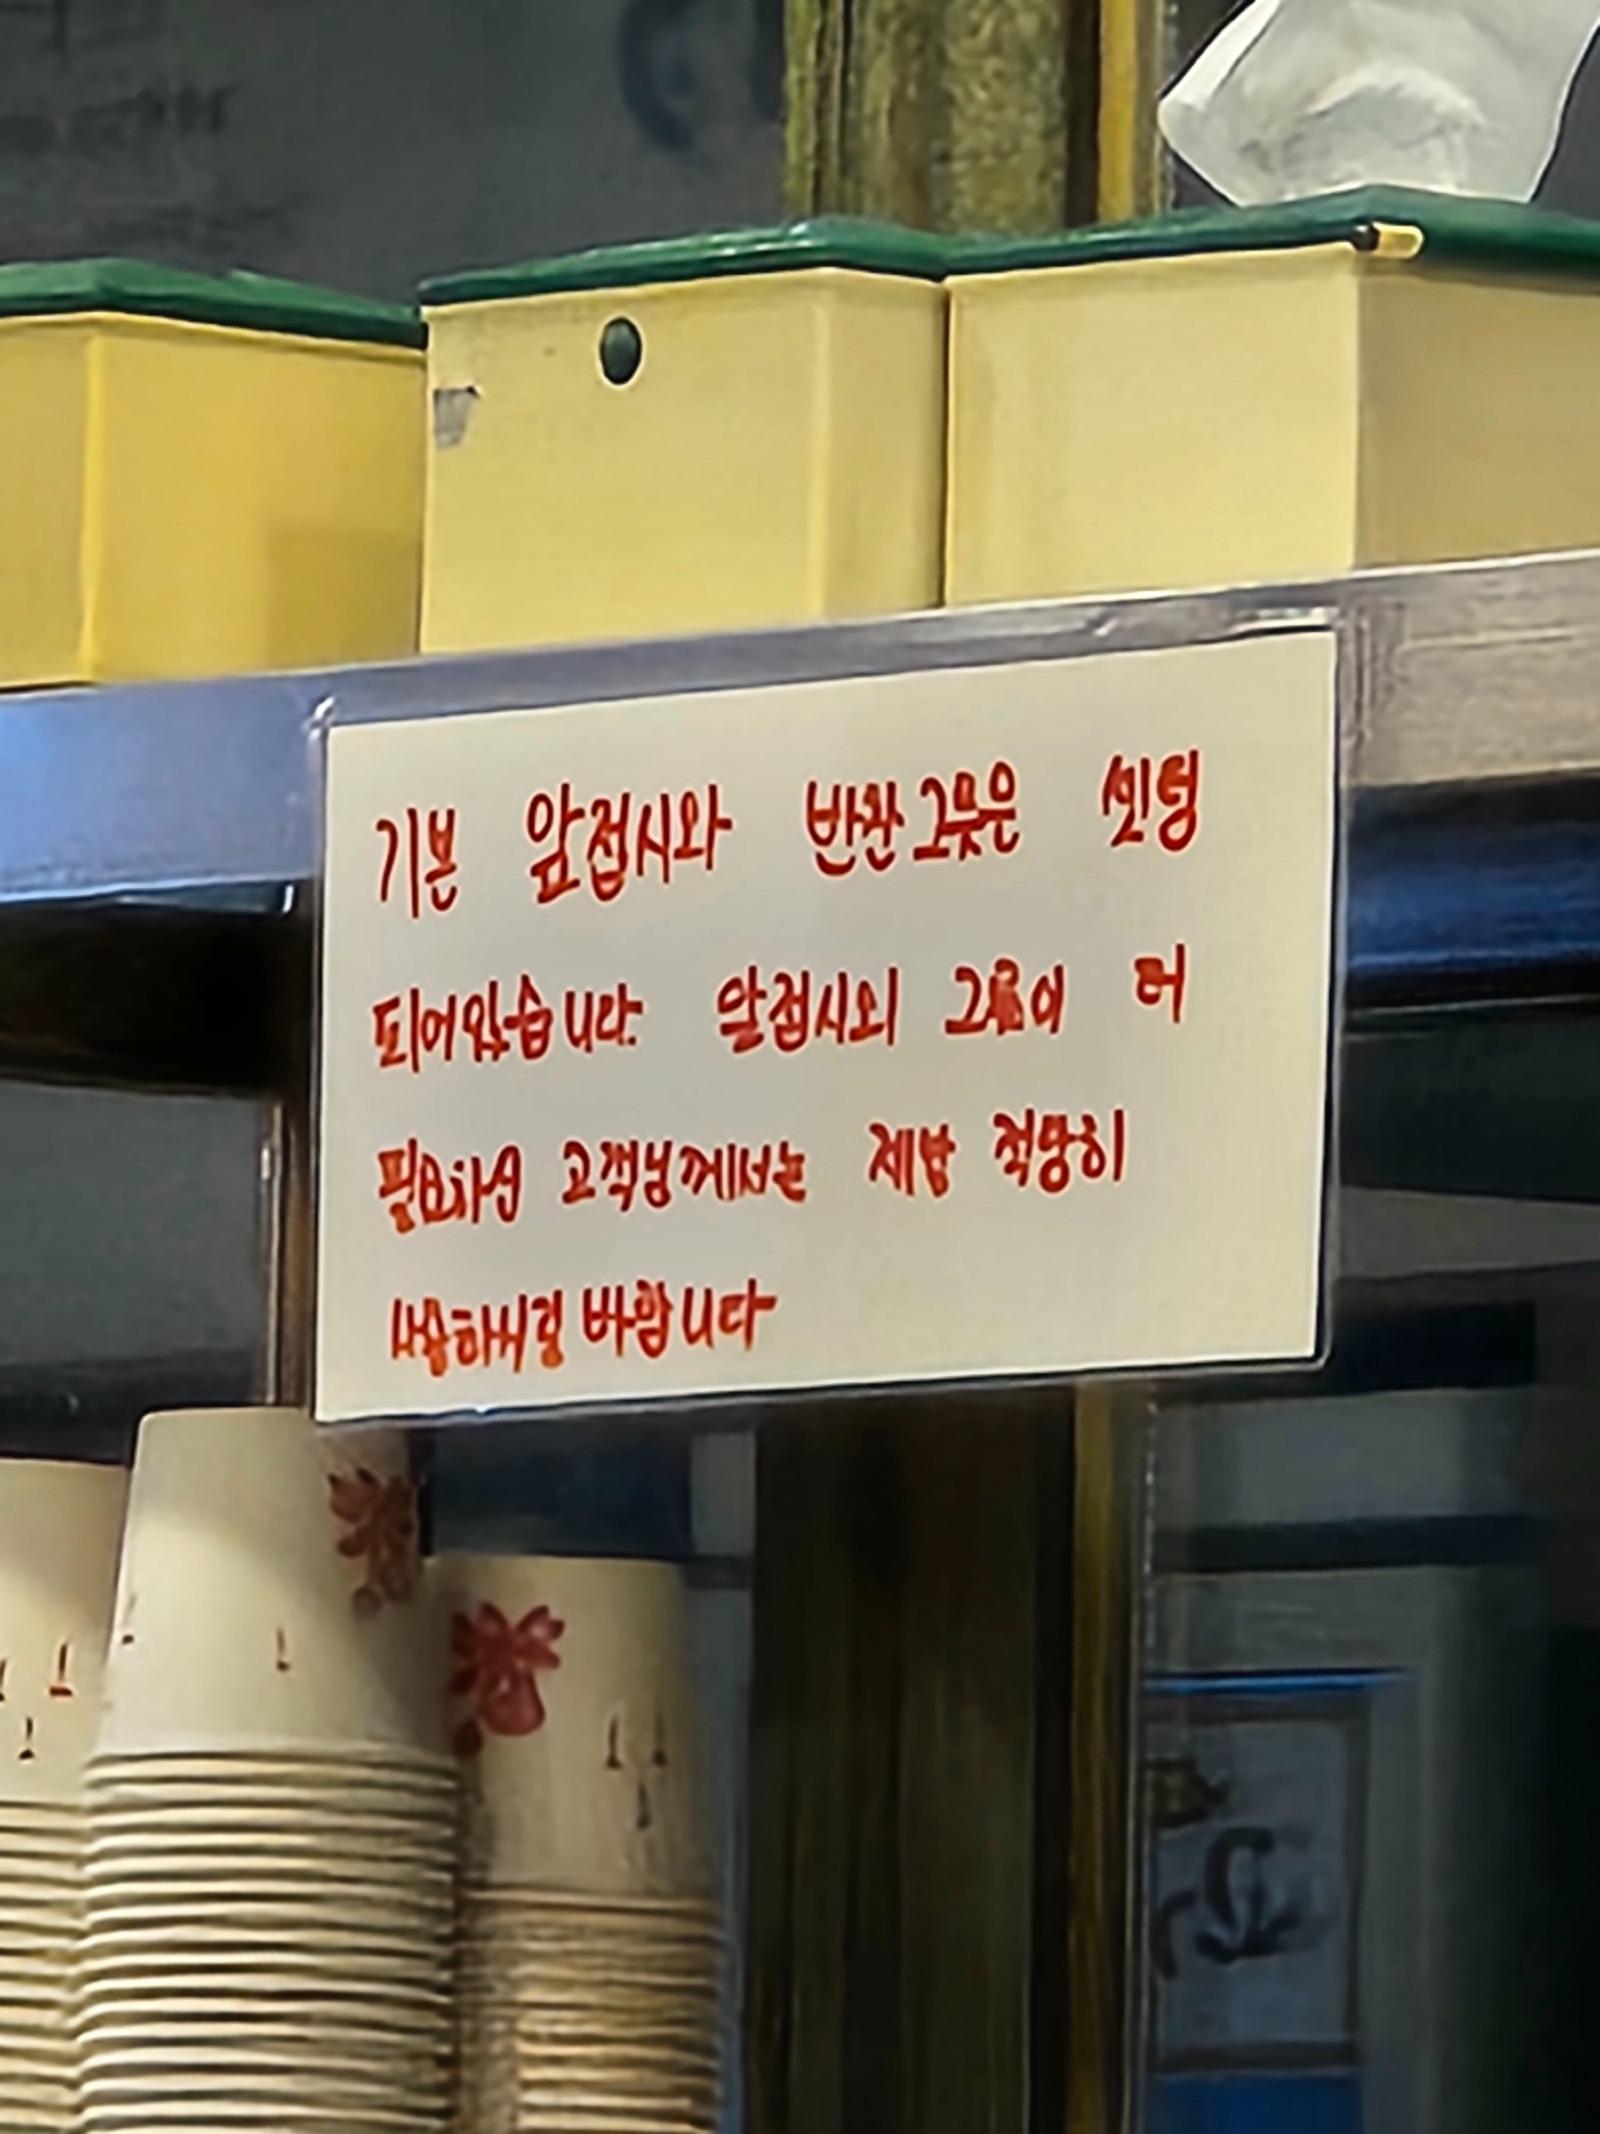 기본 앞접시와 반찬그릇은 셋팅
되어있습니다. 앞접시외 그릇이 더
고객님께서는 제발 적당히
사용하시길 바랍니다